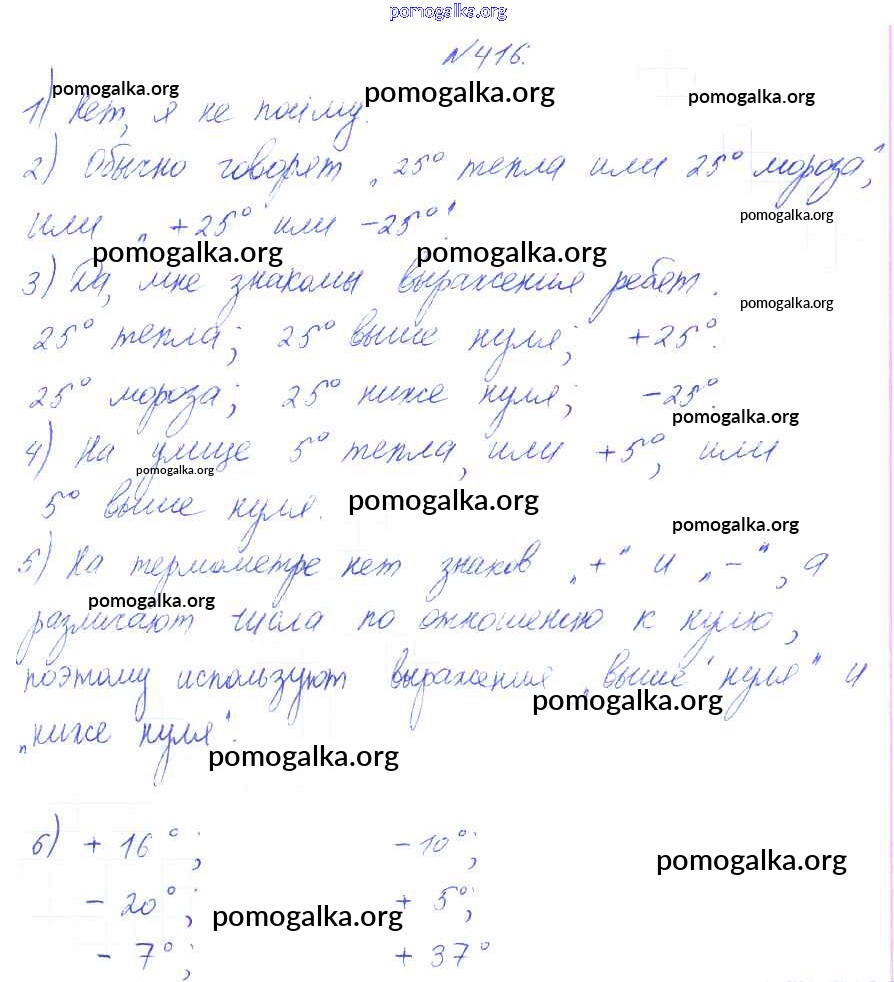 pomogalka.org
№416.
pomogalka.org pomogalka.org pomogalka.org
1) Нет, я не пойму.
2) Обычно говорят „25° тепла или 25° мороза“,
pomogalka.org
или „+25° или -25°“.
pomogalka.org pomogalka.org
3) Да, мне знакомы выражения ребят.
pomogalka.org
25° тепла; 25° выше нуля; +25°.
25° мороза; 25° ниже нуля; -25°.
pomogalka.org
4) На улице 5° тепла, или +5°, или
pomogalka.org
5° выше нуля.
pomogalka.org
pomogalka.org
5) На термометре нет знаков „+“ и „-“, а
pomogalka.org
различают числа по отношению к нулю,
поэтому используют выражения „выше нуля“ и
pomogalka.org
„ниже нуля“.
pomogalka.org
6) + 16°; -10°;
pomogalka.org
- 20°; + 5°;
pomogalka.org
- 7°; + 37°